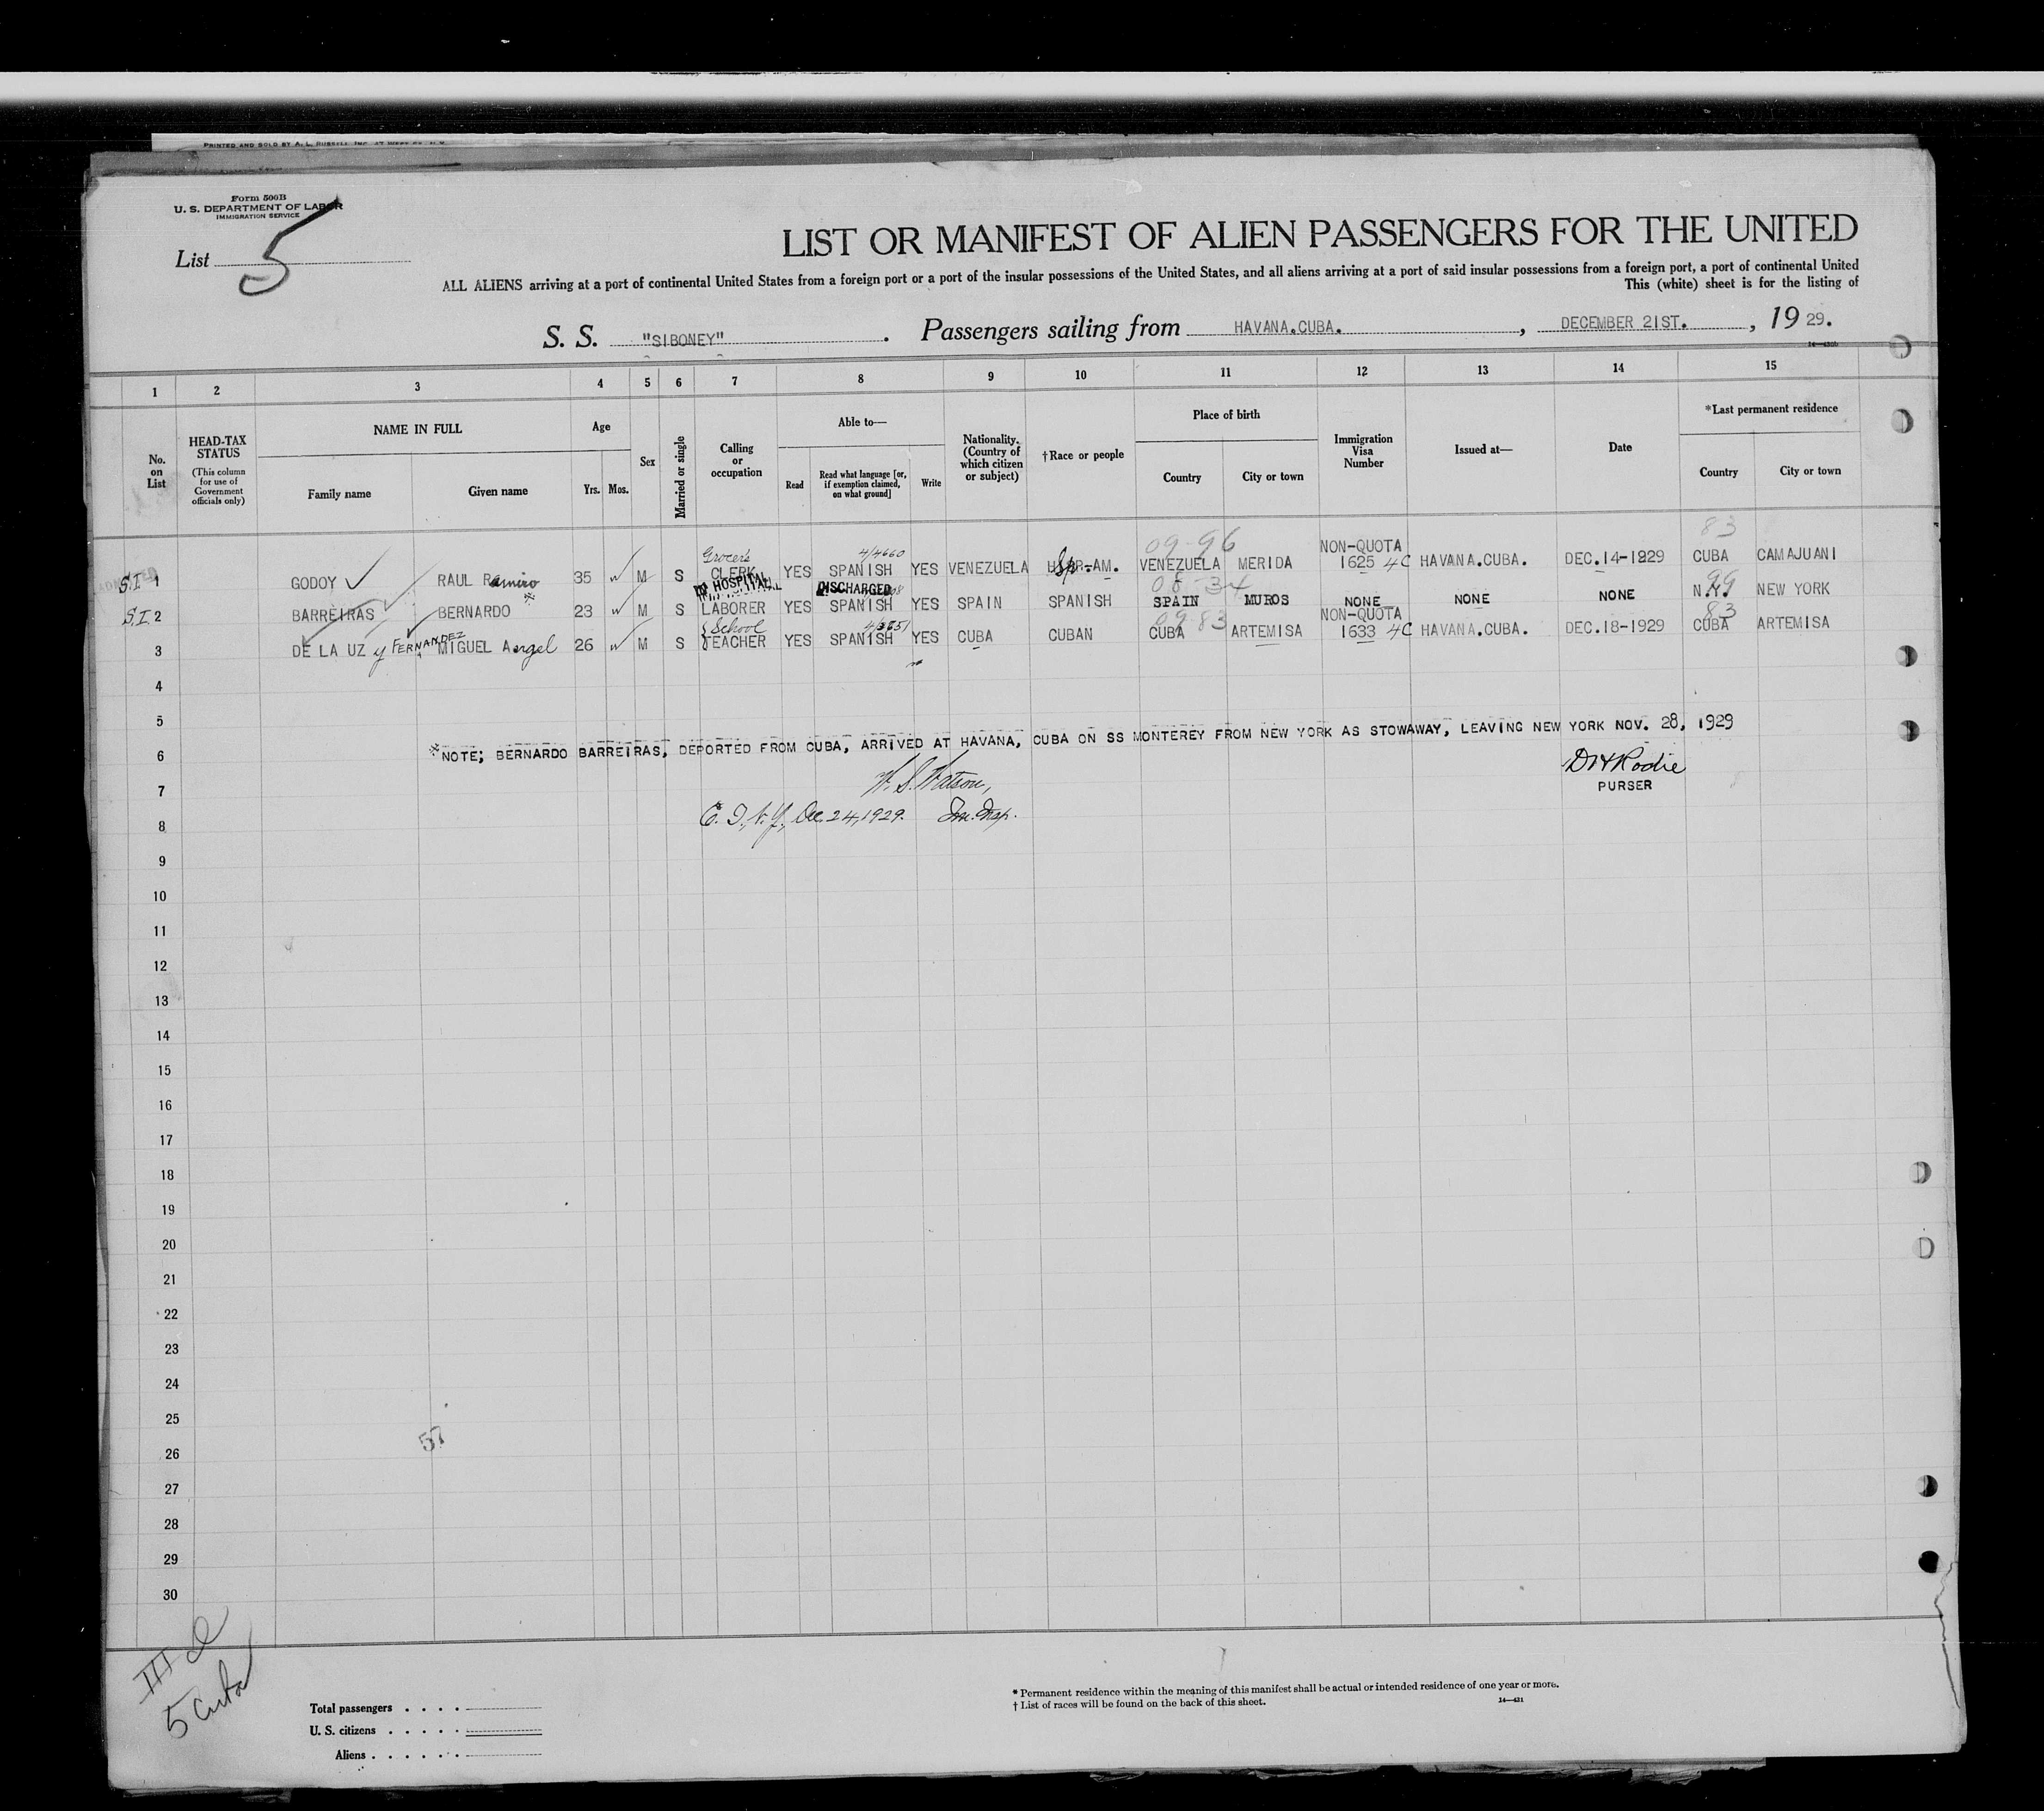 PRINTED AND SOLD BY A. L. RUSSELL, INC.
Form 500B
U. S. DEPARTMENT OF LABOR
IMMIGRATION SERVICE
List 5
LIST OR MANIFEST OF ALIEN PASSENGERS FOR THE UNITED
ALL ALIENS arriving at a port of continental United States from a foreign port or a port of the insular possessions of the United States, and all aliens arriving at a port of said insular possessions from a foreign port, a port of continental United
This (white) sheet is for the listing of
S. S. "SIBONEY" . Passengers sailing from HAVANA.CUBA. , DECEMBER 21ST. , 19 29.
1 2 3 4 5 6 7 8 9 10 11 12 13 14 15
No. on List
HEAD-TAX STATUS
(This column for use of Government officials only)
NAME IN FULL
Family name
Given name
Age
Yrs. Mos.
Sex
Married or single
Calling or occupation
Able to—
Read
Read what language [or, if exemption claimed, on what ground]
Write
Nationality. (Country of which citizen or subject)
†Race or people
Place of birth
Country
City or town
Immigration Visa Number
Issued at—
Date
*Last permanent residence
Country
City or town
Grocer's 4/4660 09-96 NON-QUOTA 83
S.I 1 GODOY RAUL Ramiro 35 M S CLERK YES SPANISH YES VENEZUELA Sp.-AM. VENEZUELA MERIDA 1625 4C HAVANA.CUBA. DEC.14-1929 CUBA CAMAJUANI
IN HOSPITAL DISCHARGED 08-34 99
S.I. 2 BARREIRAS BERNARDO * 23 M S LABORER YES SPANISH YES SPAIN SPANISH SPAIN MUROS NONE NONE NONE N.Y. NEW YORK
School 09-83 NON-QUOTA 83
3 DE LA UZ y FERNANDEZ MIGUEL Angel 26 M S TEACHER YES SPANISH YES CUBA CUBAN CUBA ARTEMISA 1633 4C HAVANA.CUBA. DEC.18-1929 CUBA ARTEMISA
4
5
*NOTE; BERNARDO BARREIRAS, DEPORTED FROM CUBA, ARRIVED AT HAVANA, CUBA ON SS MONTEREY FROM NEW YORK AS STOWAWAY, LEAVING NEW YORK NOV. 28, 1929
6
7
W. S. Watson,
PURSER
8
E. I., N.Y., Dec. 24, 1929. Im. Insp.
9
10
11
12
13
14
15
16
17
18
19
20
21
22
23
24
25
57
26
27
28
29
30
III
5 Cuba
Total passengers . . . .
U. S. citizens . . . . .
Aliens . . . . . .
* Permanent residence within the meaning of this manifest shall be actual or intended residence of one year or more.
† List of races will be found on the back of this sheet.
14—431